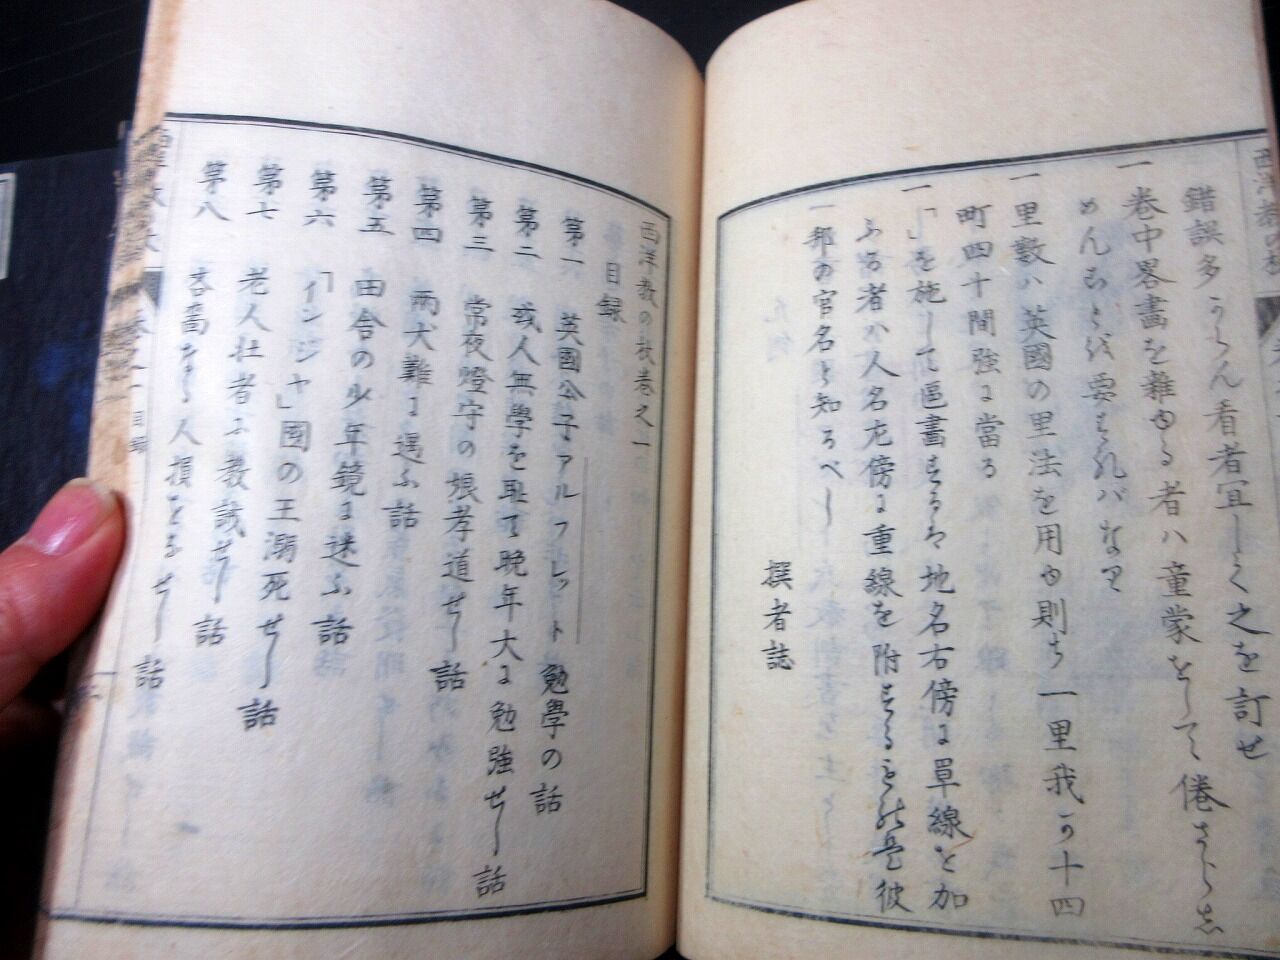 錯誤多からん看者宜しく之を訂せ
一 巻中畧畫を雑ゆる者ハ童蒙をして倦さらし
めんことを要すれバなり
一 里数ハ英國の里法を用ゆ則ち一里我か十四
町四十間強に當る
一 「」を施して區畫するは地名右傍に單線を加
ふる者は人名左傍に重線を附するものは是彼
一 邦の官名と知るべし
撰者誌
西洋教の杖巻之一
目録
第一 英國公子アルフレット勉學の話
第二 或人無學を恥て晩年大に勉強せし話
第三 常夜燈守の娘孝道せし話
第四 両犬難に遇ふ話
第五 田舎の少年鏡に迷ふ話
第六 「インジヤ」國の王溺死せし話
第七 老人壮者に教諭せし話
第八 吝嗇なる人損をなせし話